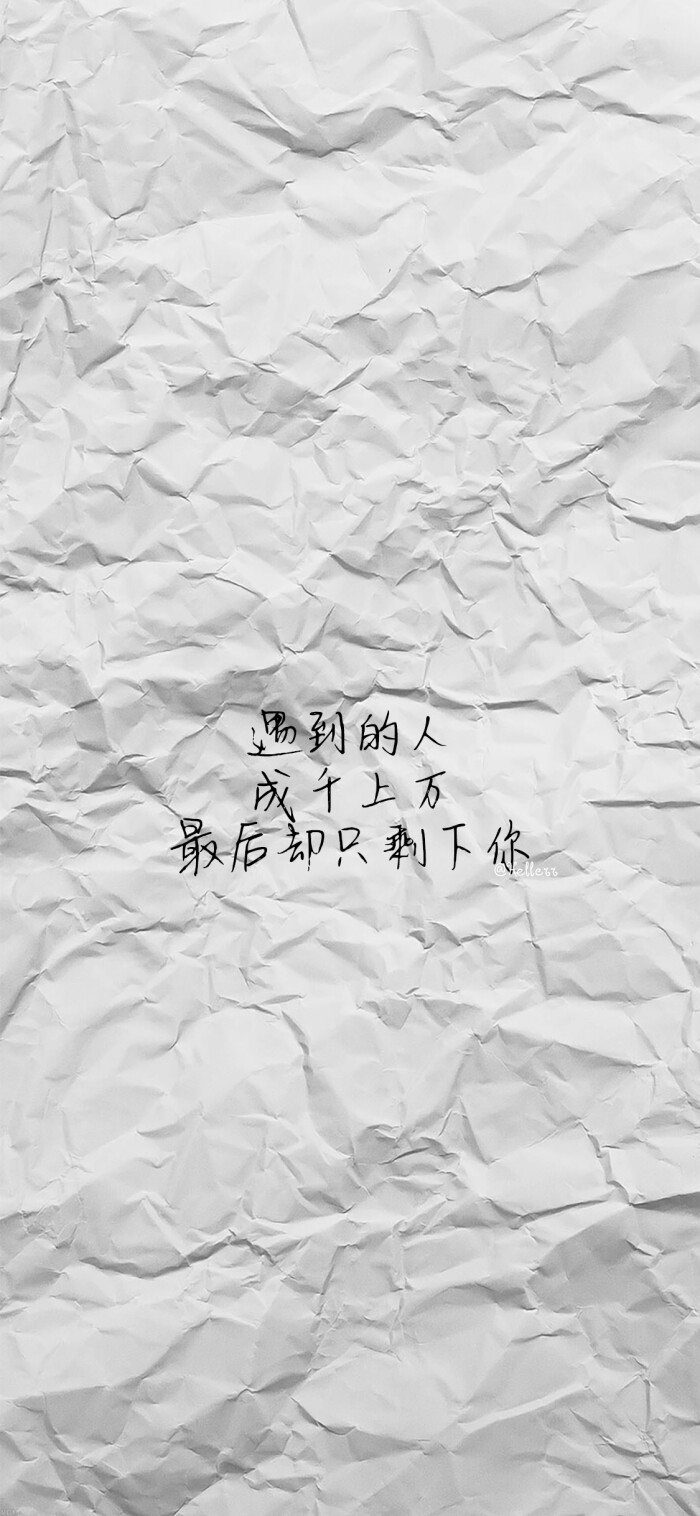 遇到的人
成千上万
最后却只剩下你